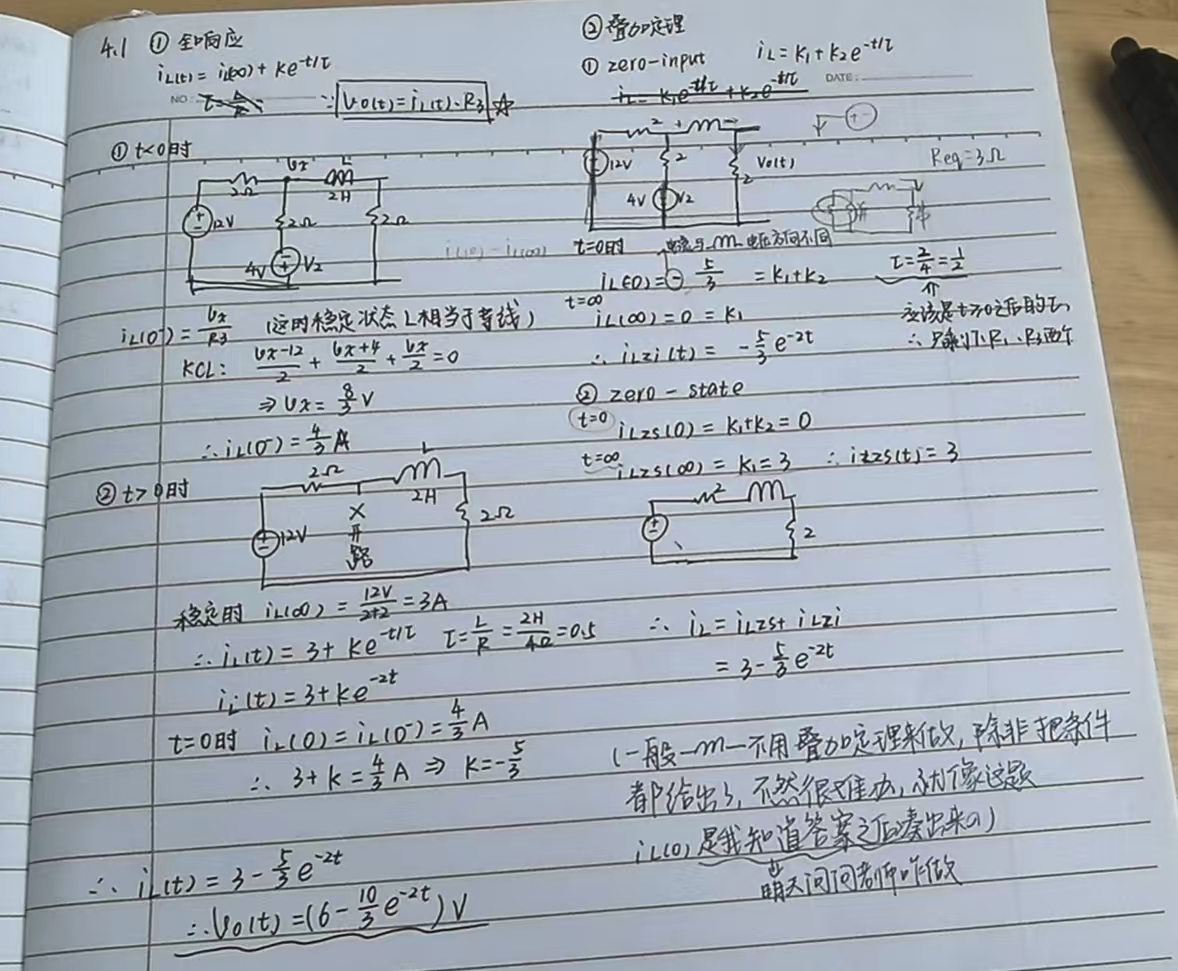 4.1 ① 全响应
iL(t) = iL(∞) + Ke^-t/τ
NO.
∵ Vo(t) = iL(t)·R3 ☆
① t<0时
Vx L
2Ω 2H
12V 2Ω 2Ω
4V V2
iL(0⁻) = Vx/R3 (这时稳定状态L相当于导线)
KCL: (Vx-12)/2 + (Vx+4)/2 + Vx/2 = 0
⇒ Vx = 8/3 V
∴ iL(0⁻) = 4/3 A
② t>0时
2Ω L
2H
12V × 开路 2Ω
稳定时 iL(∞) = 12V/(2+2) = 3A
∴ iL(t) = 3 + Ke^-t/τ τ = L/R = 2H/4Ω = 0.5
iL(t) = 3 + Ke^-2t
t=0时 iL(0) = iL(0⁻) = 4/3 A
∴ 3 + K = 4/3 A ⇒ K = -5/3
∴ iL(t) = 3 - 5/3 e^-2t
∴ Vo(t) = (6 - 10/3 e^-2t) V
② 叠加定理
① zero-input iL = K1 + K2 e^-t/τ
DATE:
iL = K1e^-t/τ + K2e^-t/τ
2
12V 2 2 Vo(t)
4V V2
Req = 3Ω
iL(0) - iL(∞)
t=0时 电压方向不同
iL(0) = - 5/3 = K1 + K2 τ = 2/4 = 1/2
t=∞
iL(∞) = 0 = K1 应该是t≥0之后的τ,
∴ iLzi(t) = -5/3 e^-2t ∴ 只剩下R1、R3两个
② zero-state
t=0 iLzs(0) = K1 + K2 = 0
t=∞ iLzs(∞) = K1 = 3 ∴ iLzs(t) = 3
2
2
∴ iL = iLzs + iLzi
= 3 - 5/3 e^-2t
(一般 不用叠加定理来做,除非把条件
都给出了,不然很难办,就像这题
iL(0)是我知道答案之后凑出来の)
明天问问老师咋做